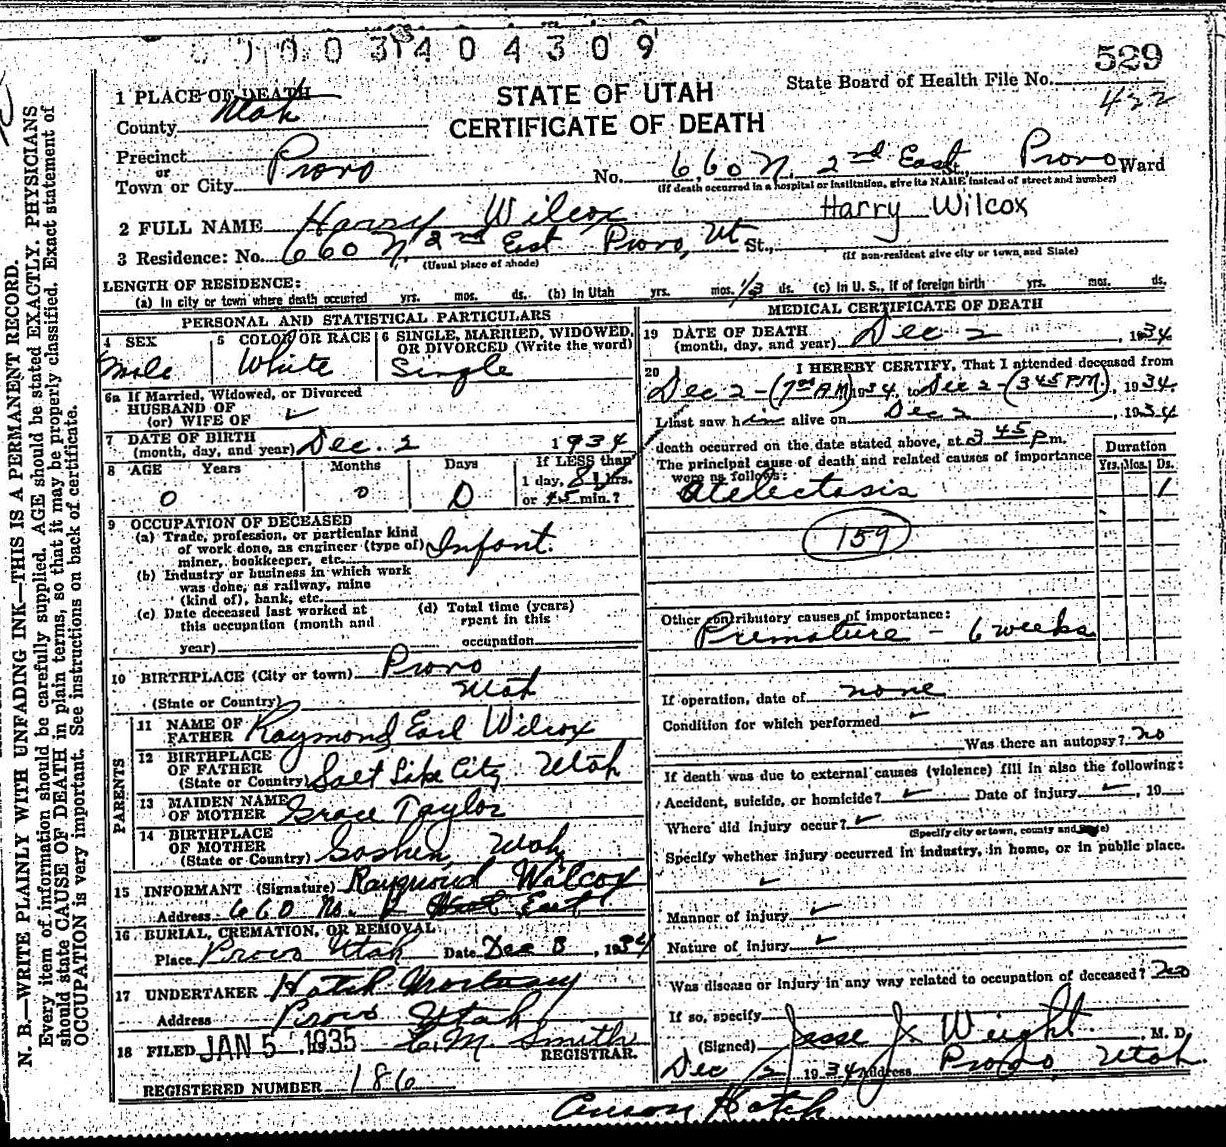 0003404309
529
State Board of Health File No.
422
STATE OF UTAH
CERTIFICATE OF DEATH
1 PLACE OF DEATH
County Utah
Precinct
or
Town or City Provo
No. 660 N. 2nd East St., Provo Ward
(If death occurred in a hospital or institution, give its NAME instead of street and number)
2 FULL NAME Harry Wilcox Harry Wilcox
3 Residence: No. 660 N. 2nd East Provo, Ut St.,
(Usual place of abode) (If non-resident give city or town, and State)
LENGTH OF RESIDENCE:
(a) In city or town where death occurred yrs. mos. ds. (b) In Utah yrs. mos. 1/3 ds. (c) In U. S., if of foreign birth yrs. mos. ds.
PERSONAL AND STATISTICAL PARTICULARS
4 SEX Male
5 COLOR OR RACE White
6 SINGLE, MARRIED, WIDOWED, OR DIVORCED (Write the word) Single
6a If Married, Widowed, or Divorced
HUSBAND OF
(or) WIFE OF
7 DATE OF BIRTH
(month, day, and year) Dec. 2 1934
8 AGE Years Months Days If LESS than
0 0 0 1 day, 8 hrs.
or 45 min.?
9 OCCUPATION OF DECEASED
(a) Trade, profession, or particular kind
of work done, as engineer (type of) Infant.
miner, bookkeeper, etc.
(b) Industry or business in which work
was done, as railway, mine
(kind of), bank, etc.
(c) Date deceased last worked at
this occupation (month and
year)
(d) Total time (years)
spent in this
occupation
10 BIRTHPLACE (City or town) Provo
(State or Country) Utah
PARENTS
11 NAME OF
FATHER Raymond Earl Wilcox
12 BIRTHPLACE
OF FATHER
(State or Country) Salt Lake City Utah
13 MAIDEN NAME
OF MOTHER Grace Taylor
14 BIRTHPLACE
OF MOTHER
(State or Country) Goshen, Utah
15 INFORMANT (Signature) Raymond Wilcox
Address 660 No. 2 East
16 BURIAL, CREMATION, OR REMOVAL
Place Provo Utah Date Dec 3, 1934
17 UNDERTAKER Hatch Mortuary
Address Provo Utah
18 FILED JAN 5, 1935 E. M. Smith
REGISTRAR.
REGISTERED NUMBER 186
MEDICAL CERTIFICATE OF DEATH
19 DATE OF DEATH
(month, day, and year) Dec 2, 1934
20 I HEREBY CERTIFY, That I attended deceased from
Dec 2-(700 AM) 1934, to Dec 2-(345 P.M.), 1934.
I last saw him alive on Dec 2, 1934
death occurred on the date stated above, at 3 45 P.m.
The principal cause of death and related causes of importance
were as follows:
Duration
Yrs. Mos. Ds.
Atelectasis 1
159
Other contributory causes of importance:
Premature - 6 weeks
If operation, date of none
Condition for which performed
Was there an autopsy? No
If death was due to external causes (violence) fill in also the following:
Accident, suicide, or homicide? Date of injury, 19
Where did injury occur?
(Specify city or town, county and State)
Specify whether injury occurred in industry, in home, or in public place.
Manner of injury
Nature of injury
Was disease or injury in any way related to occupation of deceased? No
If so, specify
(Signed) Jesse J. Weight M. D.
Dec 12 1934 Address Provo, Utah.
Anson Hatch
N. B.—WRITE PLAINLY WITH UNFADING INK—THIS IS A PERMANENT RECORD.
Every item of information should be carefully supplied. AGE should be stated EXACTLY. PHYSICIANS
should state CAUSE OF DEATH in plain terms, so that it may be properly classified. Exact statement of
OCCUPATION is very important. See instructions on back of certificate.